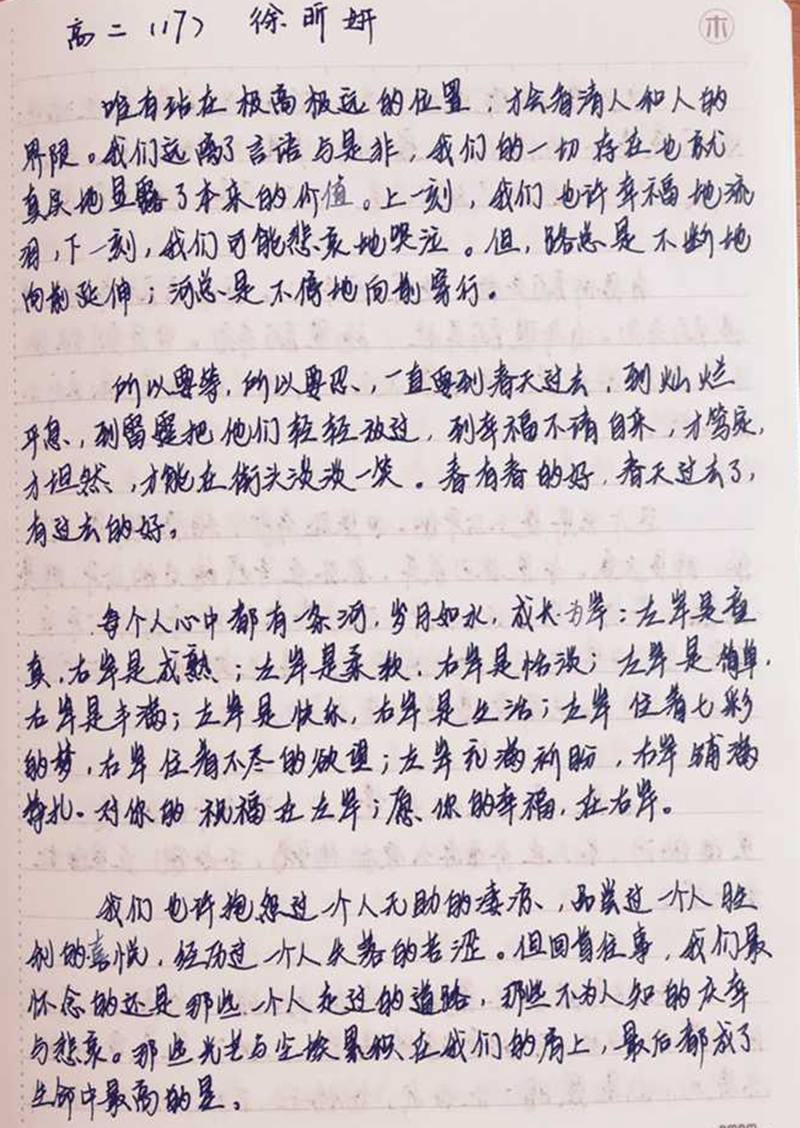 高二(17) 徐昕妍
木
唯有站在极高极远的位置；才会看清人和人的
界限。我们远离了言语与是非，我们的一切存在也就
真实地显露了本来的价值。上一刻，我们也许幸福地流
泪，下一刻，我们可能悲哀地哭泣。但，路总是不断地
向前延伸；河总是不停地向前穿行。
所以要等，所以要忍、一直要到春天过去，到灿烂
平息、到雷霆把他们轻轻放过，到幸福不请自来，才笃定，
才坦然、才能在街头淡淡一笑。春有春的好，春天过去了，
有过去的好。
每个人心中都有一条河，岁月如水，成长为岸：左岸是童
真，右岸是成熟；左岸是柔软，右岸是恬淡；左岸是简单，
右岸是丰满；左岸是快乐，右岸是生活；左岸住着七彩
的梦，右岸住着不尽的欲望；左岸充满祈盼，右岸铺满
挣扎。对你的祝福在左岸；愿、你的幸福，在右岸。
我们也许抱怨过一个人无助的凄凉、品尝过一个人胜
利的喜悦，经历过一个人失落的苦涩。但回首往事，我们最
怀念的还是那些一个人走过的道路，那些不为人知的庆幸
与悲哀。那些光芒与尘埃累积在我们的肩上，最后都成了
生命中最高的星。